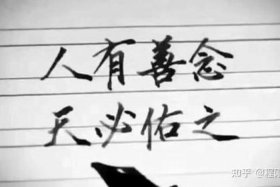 人有善念
天必佑之
知乎